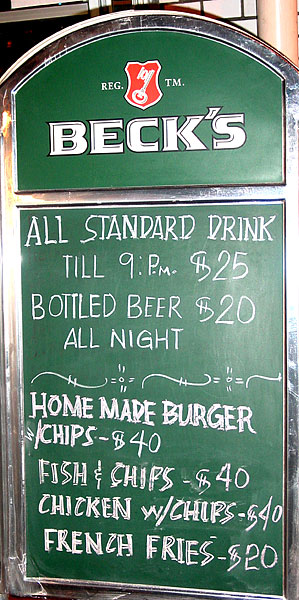 REG. TM.
BECK'S
ALL STANDARD DRINK
TILL 9:P.M. $25
BOTTLED BEER $20
ALL NIGHT
HOME MADE BURGER
W/CHIPS-$40
FISH & CHIPS-$40
CHICKEN W/CHIPS-$40
FRENCH FRIES-$20